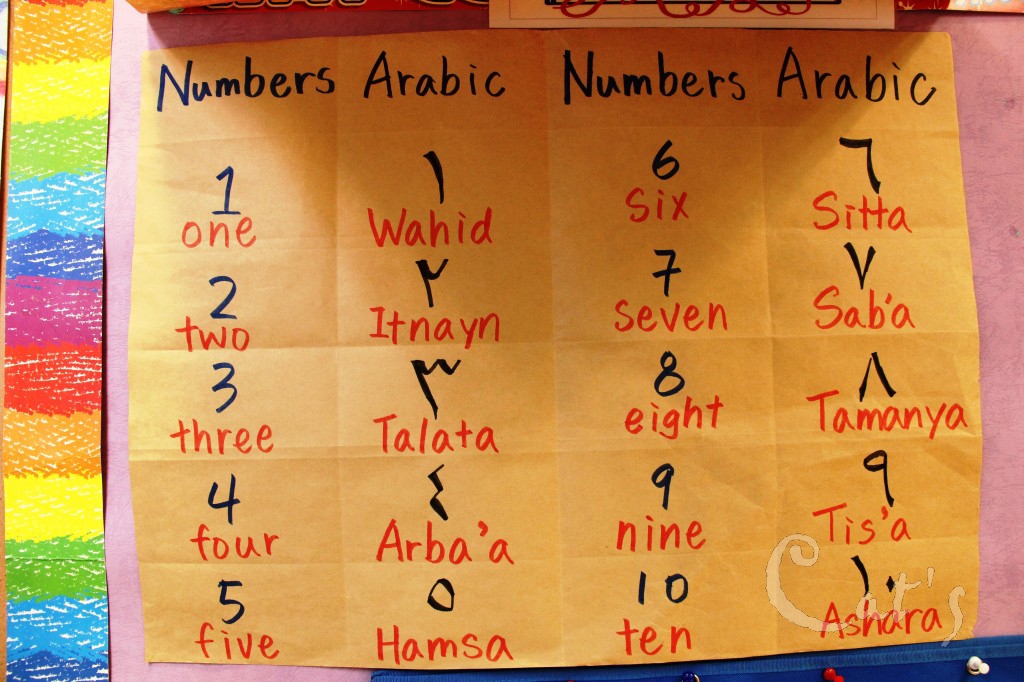 Numbers Arabic Numbers Arabic
1 ١ 6 ٦
one Wahid six Sitta
2 ٢ 7 ٧
two Itnayn seven Sab'a
3 ٣ 8 ٨
three Talata eight Tamanya
4 ٤ 9 ٩
four Arba'a nine Tis'a
5 ٥ 10 ١٠
five Hamsa ten Ashara
Cat's